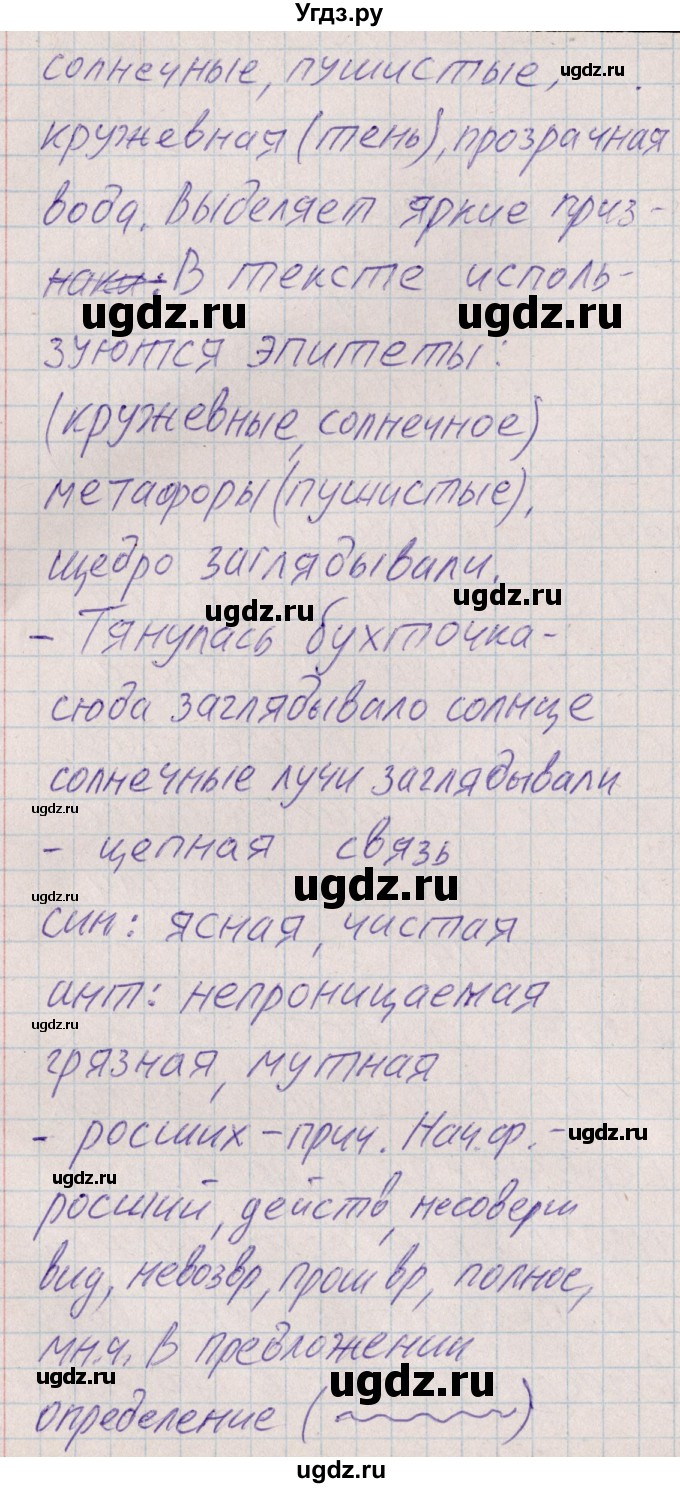 Угдз.ру
солнечные, пушистые,
ugdz.ru
кружевная (тень), прозрачная
вода. Выделяет яркие приз-
наки. В тексте исполь-
ugdz.ru ugdz.ru
зуются эпитеты:
(кружевные, солнечное)
метафоры (пушистые),
щедро заглядывали.
ugdz.ru ugdz.ru
- Тянулась бухточка-
сюда заглядывало солнце
солнечные лучи заглядывали
ugdz.ru
- цепная связь
ugdz.ru ugdz.ru
син: ясная, чистая
ант: непроницаемая
ugdz.ru
грязная, мутная
- росших - прич. Нач.ф. -
ugdz.ru
ugdz.ru
росший, действ, несоверш
вид, невозвр, прош вр, полное,
мн.ч. В предложении
ugdz.ru ugdz.ru
определение ( )
ugdz.ru